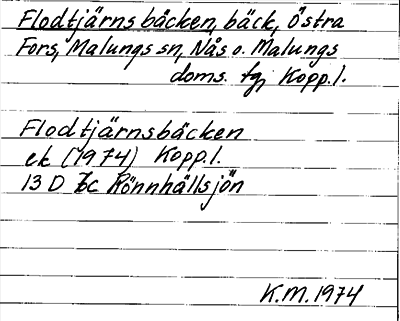 Flodtjärnsbäcken, bäck, Östra
Fors, Malungs sn, Nås o. Malungs
doms. tg, Kopp.l.
Flodtjärnsbäcken
ek (1974) Kopp.l.
13 D 7c Rönnhällsjön
K.M. 1974